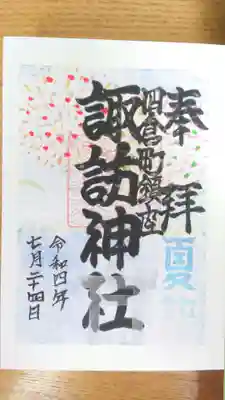 奉拝
四倉町鎮座
諏訪神社
令和四年
七月二十四日
夏